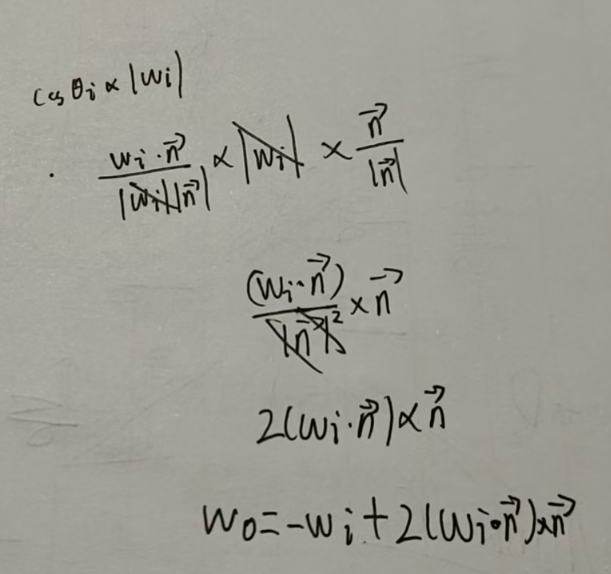 cos θi × |wi|
wi · n⃗ / |wi||n⃗| × |wi| × n⃗ / |n⃗|
(wi · n⃗) / |n⃗|² × n⃗
2(wi · n⃗) × n⃗
wo = -wi + 2(wi · n⃗) × n⃗